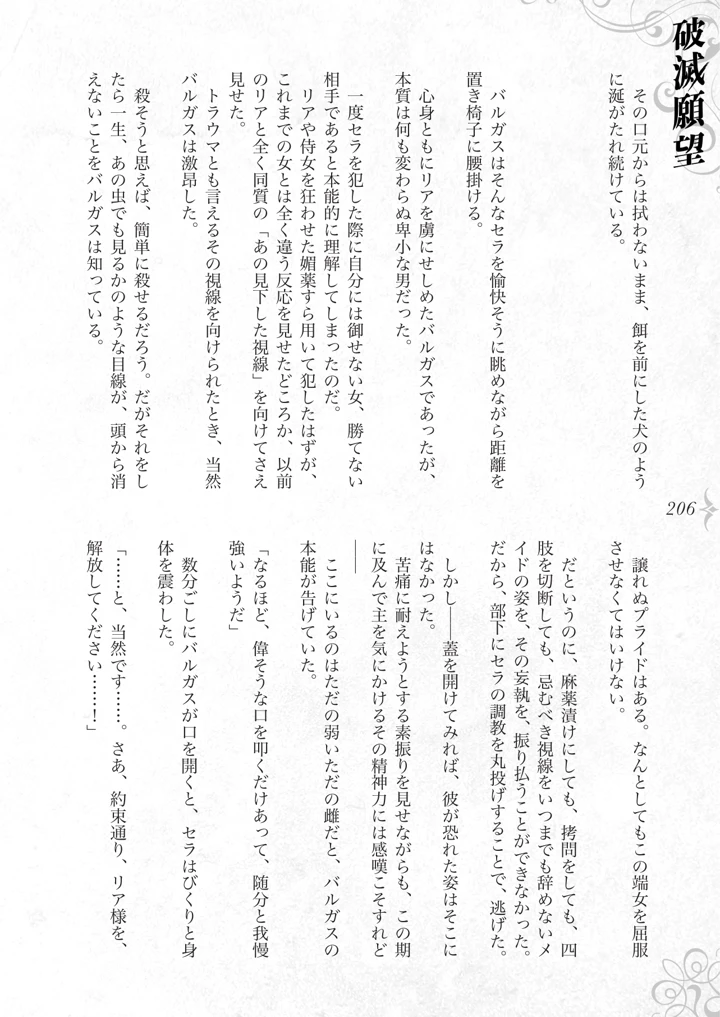 破滅願望
その口元からは拭わないまま、餌を前にした犬のよう
に涎がたれ続けている。
バルガスはそんなセラを愉快そうに眺めながら距離を
置き椅子に腰掛ける。
心身ともにリアを虜にせしめたバルガスであったが、
本質は何も変わらぬ卑小な男だった。
一度セラを犯した際に自分には御せない女、勝てない
相手であると本能的に理解してしまったのだ。
リアや侍女を狂わせた媚薬すら用いて犯したはずが、
これまでの女とは全く違う反応を見せたどころか、以前
のリアと全く同質の「あの見下した視線」を向けてさえ
見せた。
トラウマとも言えるその視線を向けられたとき、当然
バルガスは激昂した。
殺そうと思えば、簡単に殺せるだろう。だがそれをし
たら一生、あの虫でも見るかのような目線が、頭から消
えないことをバルガスは知っている。
206
譲れぬプライドはある。なんとしてもこの端女を屈服
させなくてはいけない。
だというのに、麻薬漬けにしても、拷問をしても、四
肢を切断しても、忌むべき視線をいつまでも辞めないメ
イドの姿を、その妄執を、振り払うことができなかった。
だから、部下にセラの調教を丸投げすることで、逃げた。
しかし――蓋を開けてみれば、彼が恐れた姿はそこに
はなかった。
苦痛に耐えようとする素振りを見せながらも、この期
に及んで主を気にかけるその精神力には感嘆こそすれど
――
ここにいるのはただの弱いただの雌だと、バルガスの
本能が告げていた。
「なるほど、偉そうな口を叩くだけあって、随分と我慢
強いようだ」
数分ごしにバルガスが口を開くと、セラはびくりと身
体を震わした。
「……と、当然です……。さあ、約束通り、リア様を、
解放してください……！」